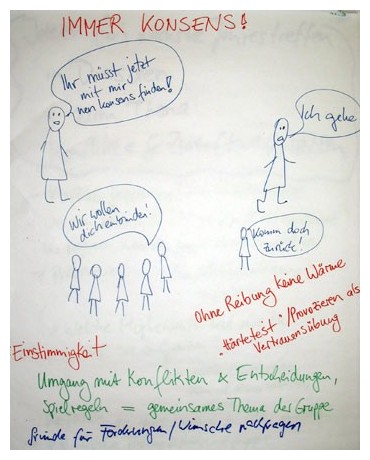 IMMER KONSENS!
Ihr müsst jetzt
mit mir
nen konsens finden!
Ich gehe
Wir wollen
dich einbinden!
Komm doch
zurück!
Ohne Reibung keine Wärme
"Härtetest"/Provozieren als
Vertrauensübung
Einstimmigkeit
Umgang mit Konflikten & Entscheidungen,
Spielregeln = gemeinsames Thema der Gruppe
Gründe für Forderungen/Wünsche nachfragen